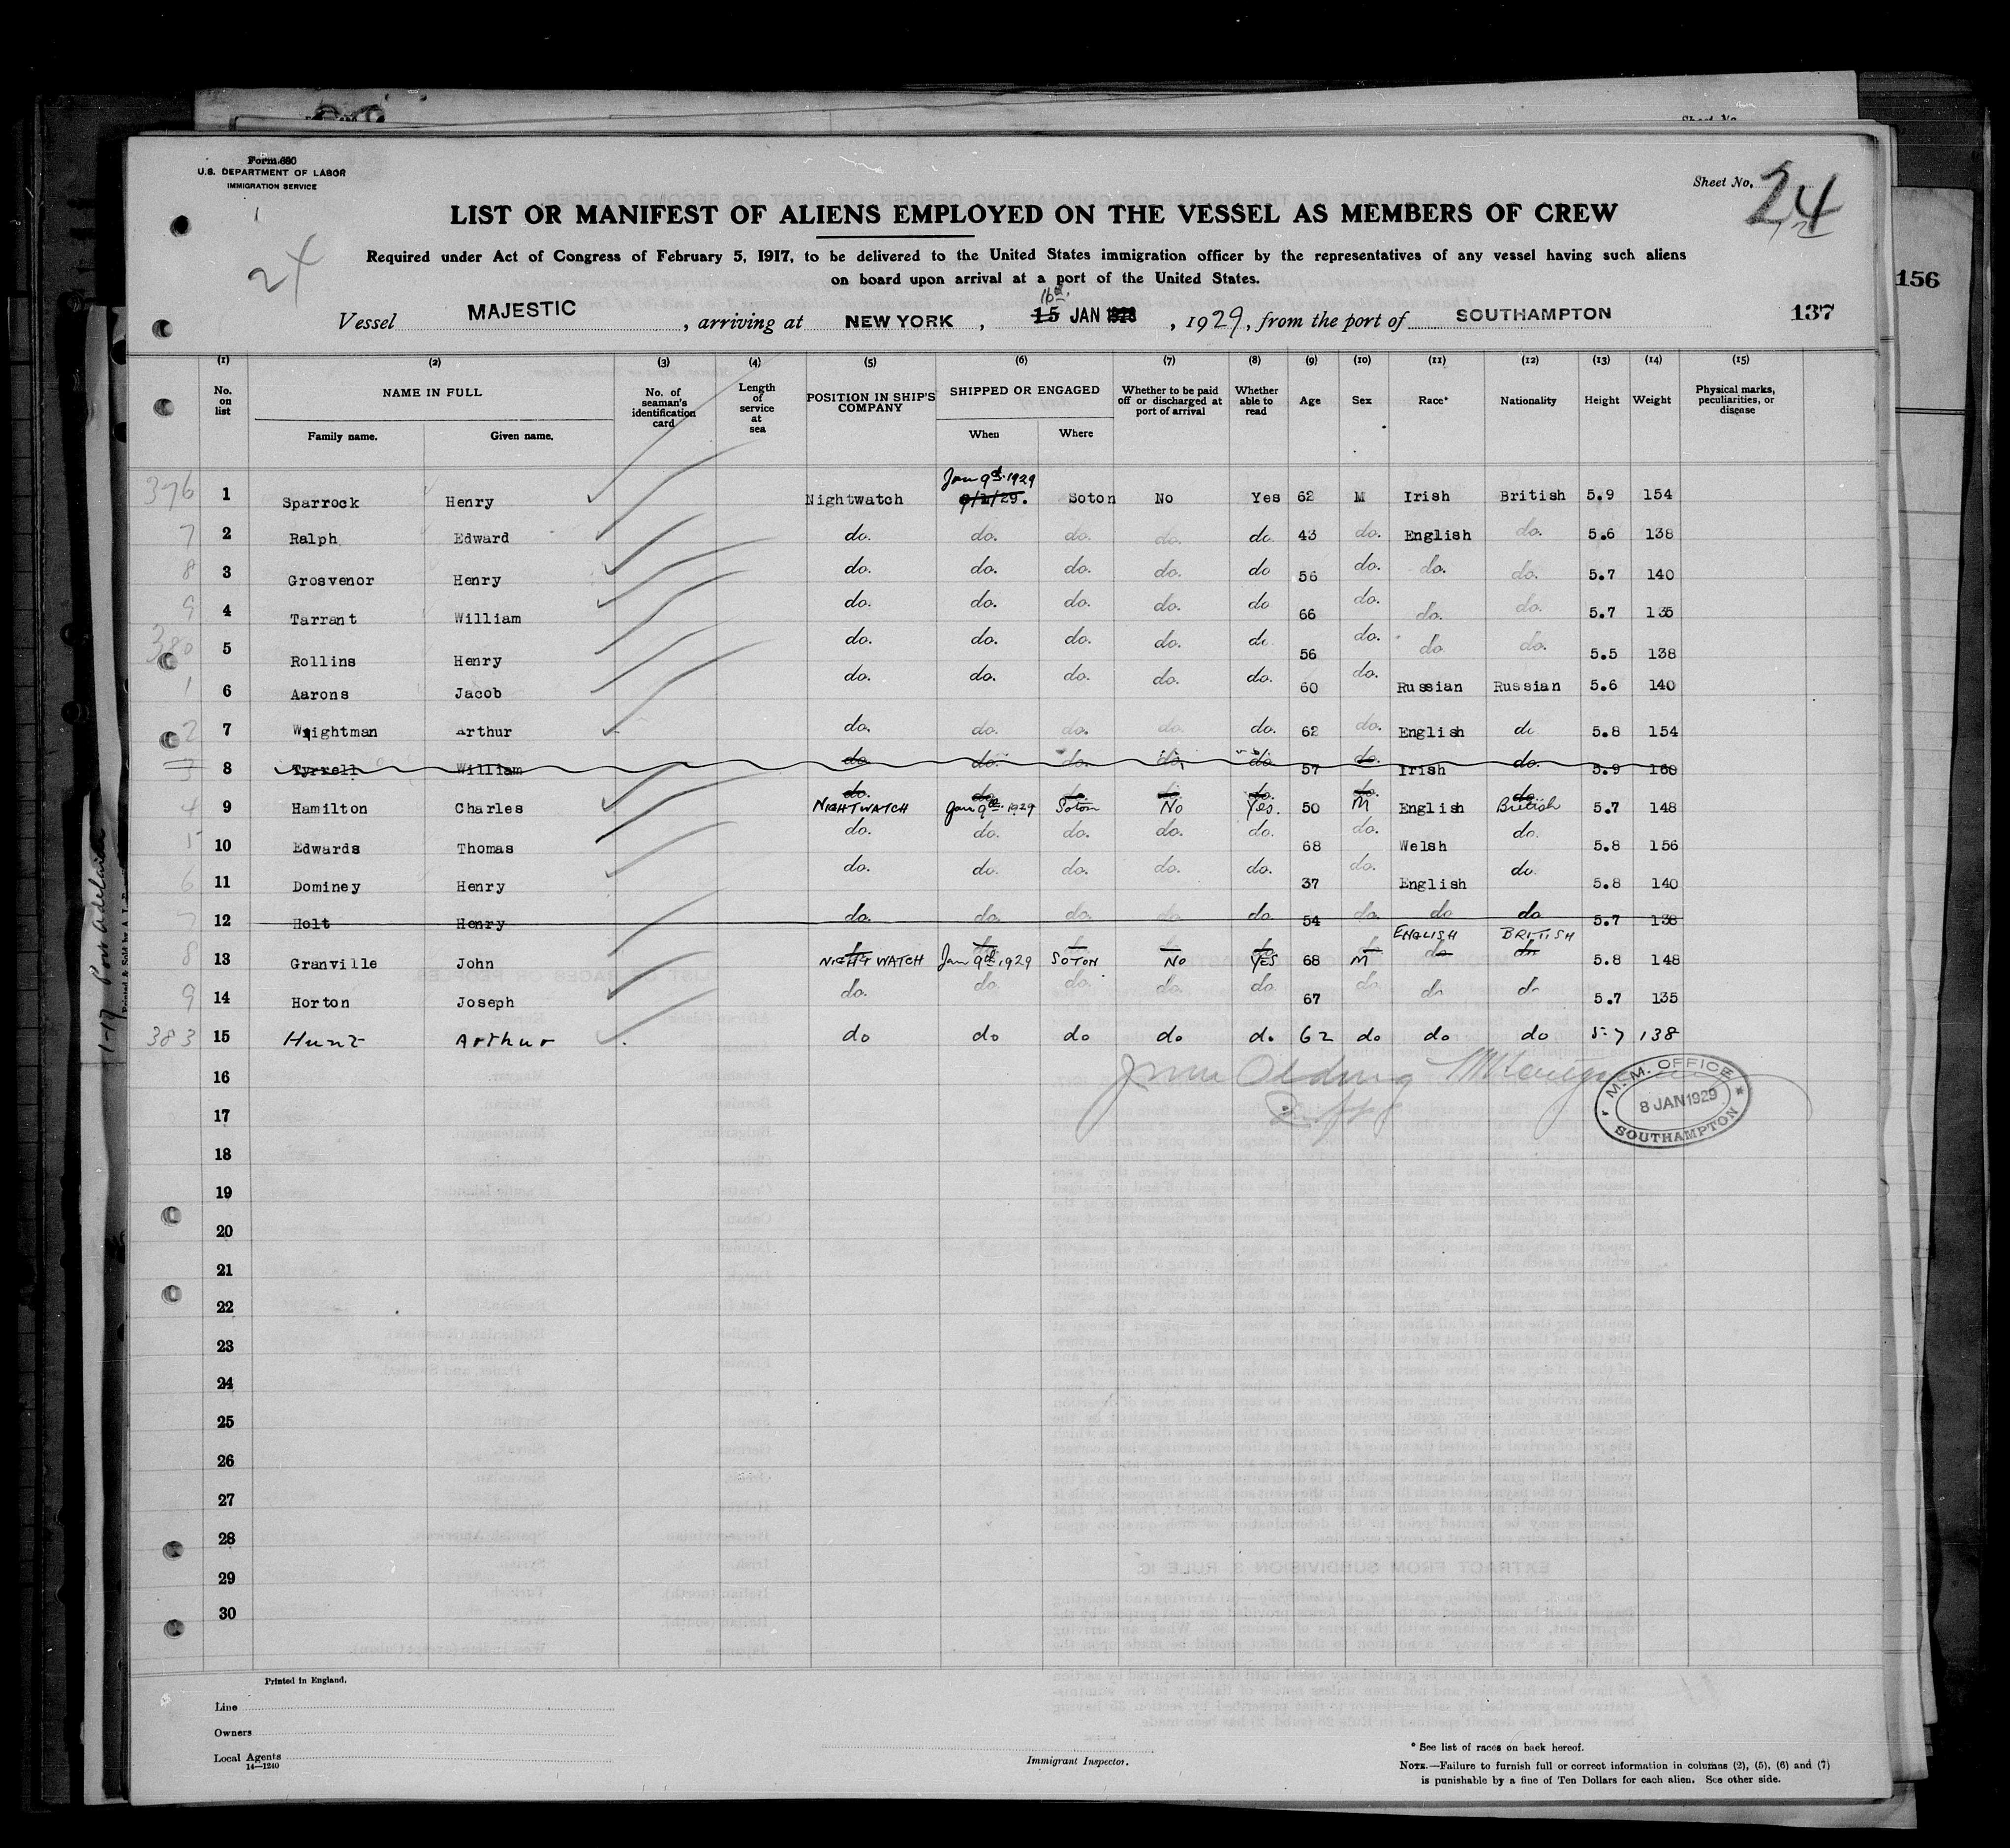 Form 680
U.S. DEPARTMENT OF LABOR
IMMIGRATION SERVICE
Sheet No. 24
24
LIST OR MANIFEST OF ALIENS EMPLOYED ON THE VESSEL AS MEMBERS OF CREW
Required under Act of Congress of February 5, 1917, to be delivered to the United States immigration officer by the representatives of any vessel having such aliens
on board upon arrival at a port of the United States.
16th
Vessel MAJESTIC, arriving at NEW YORK, 15 JAN 1928, 1929, from the port of SOUTHAMPTON
137
156
(1) (2) (3) (4) (5) (6) (7) (8) (9) (10) (11) (12) (13) (14) (15)
No. on list NAME IN FULL Family name. Given name. No. of seaman's identification card Length of service at sea POSITION IN SHIP'S COMPANY SHIPPED OR ENGAGED When Where Whether to be paid off or discharged at port of arrival Whether able to read Age Sex Race* Nationality Height Weight Physical marks, peculiarities, or disease
Jan 9th 1929
376 1 Sparrock Henry Nightwatch 9/1/29. Soton No Yes 62 M Irish British 5.9 154
7 2 Ralph Edward do. do. do. do. do 43 do. English do. 5.6 138
8 3 Grosvenor Henry do. do. do. do. do 56 do. do. do. 5.7 140
9 4 Tarrant William do. do. do. do. do 66 do. do. do. 5.7 135
380 5 Rollins Henry do. do. do. do. do 56 do. do do. 5.5 138
1 6 Aarons Jacob do. do. do. do. do. 60 do. Russian Russian 5.6 140
2 7 Wrightman Arthur do. do. do. do. do. 62 do. English do 5.8 154
3 8 Tyrrell William do. do. do. do. do. 57 do. Irish do. 5.9 160
do. do. do. do. do. do. do.
4 9 Hamilton Charles NIGHTWATCH Jan 9th 1929 Soton No Yes. 50 M English British 5.7 148
5 10 Edwards Thomas do. do. do. do. do. 68 do. Welsh do. 5.8 156
6 11 Dominey Henry do. do. do. do. do. 37 do. English do. 5.8 140
7 12 Holt Henry do. do. do. do. do. 54 do. do do 5.7 138
ENGLISH BRITISH
8 13 Granville John NIGHT WATCH Jan 9th 1929 SOTON No YES 68 M do do 5.8 148
9 14 Horton Joseph do. do. do. do. do. 67 do. do do 5.7 135
383 15 Hunt Arthur do do do do do. 62 do do do 5.7 138
16
M.M. OFFICE
8 JAN 1929
SOUTHAMPTON
17
18
19
20
21
22
23
24
25
26
27
28
29
30
Printed in England.
Line
Owners
Local Agents
14—1240
Immigrant Inspector.
* See list of races on back hereof.
NOTE.—Failure to furnish full or correct information in columns (2), (5), (6) and (7)
is punishable by a fine of Ten Dollars for each alien. See other side.